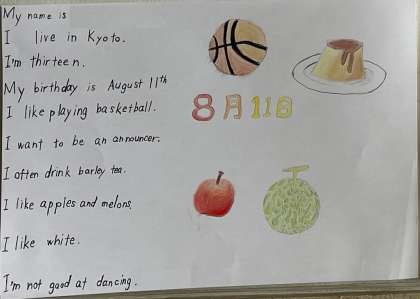 My name is
I live in Kyoto.
I'm thirteen.
My birthday is August 11th
I like playing basketball.
8月11日
I want to be an announcer.
I often drink barley tea.
I like apples and melons.
I like white.
I'm not good at dancing.